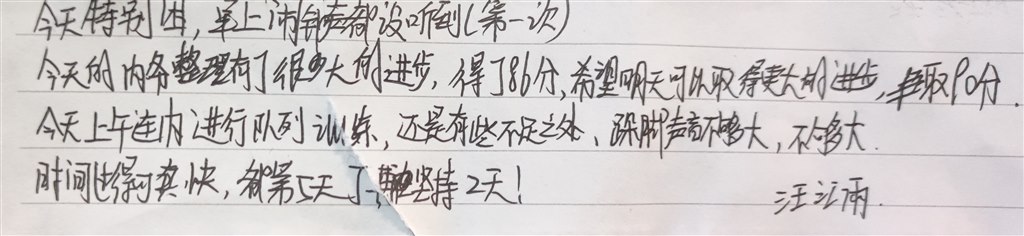 今天特别困,早上闹钟声都没听到(第一次)
今天的内务整理有了很大的进步,得了86分,希望明天可以取得更大的进步,争取90分.
今天上午连内进行队列训练,还是有些不足之处、跺脚声音不够大,不够大.
时间过得可真快,都第5天了,再坚持2天!
汪江雨.